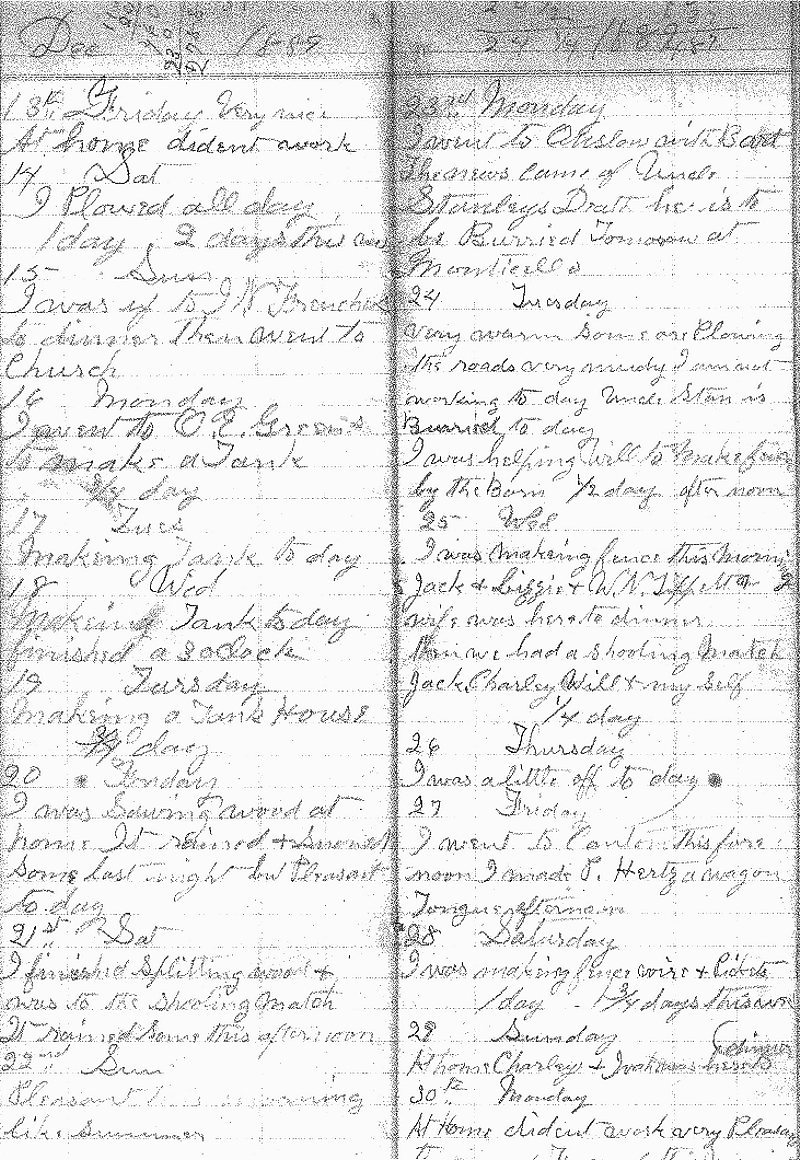 Dec 1889
13th Friday Very nice
At home dident work
14 Sat
I Plowed all day
1 day . 2 days this
15 Sun
I was up to J N Frenches
to dinner then went to
Church
16 Monday
I went to O.E. Greens
to make a Tank
day
17 Tues
Makeing Tank to day
18 Wed
Makeing Tank to day
finished a 3 oClock
19 Tursday
Makeing a Tank House
day
20 Friday
I was Sawing wood at
home It rained + Snowed
Some last night but Pleasant
to day
21st Sat
I finished Splitting wood +
was to the Shooting Match
It rained Some this afternoon
22nd Sun
Pleasant morning
like Summer
1889
23rd Monday
I went to Onslow with Bart
The news came of Uncle
Stanleys Death he is to
be Burried Tomorow at
Monticello
24 Tuesday
very warm Some are Plowing
the roads very mudy I am not
working to day Uncle Stan is
Burried to day
I was helping Will to Make fence
by the Barn 1/2 day after noon
25 Wed
I was makeing fence this Morning
Jack + Lizzie + W.N.
wife was here to dinner
then we had a shooting Match
Jack Charley Will + my Self
1/4 day
26 Thursday
I was a little off to day
27 Friday
I went to Canton this fore
noon I made P. Hertz a wagon
Tongue afternoon
28 Saturday
I was makeing fence wire + Pickets
1 day - 1 3/4 days this
29 Sunday
At home Charley + was here to
dinner
30th Monday
At Home dident work very Pleasant